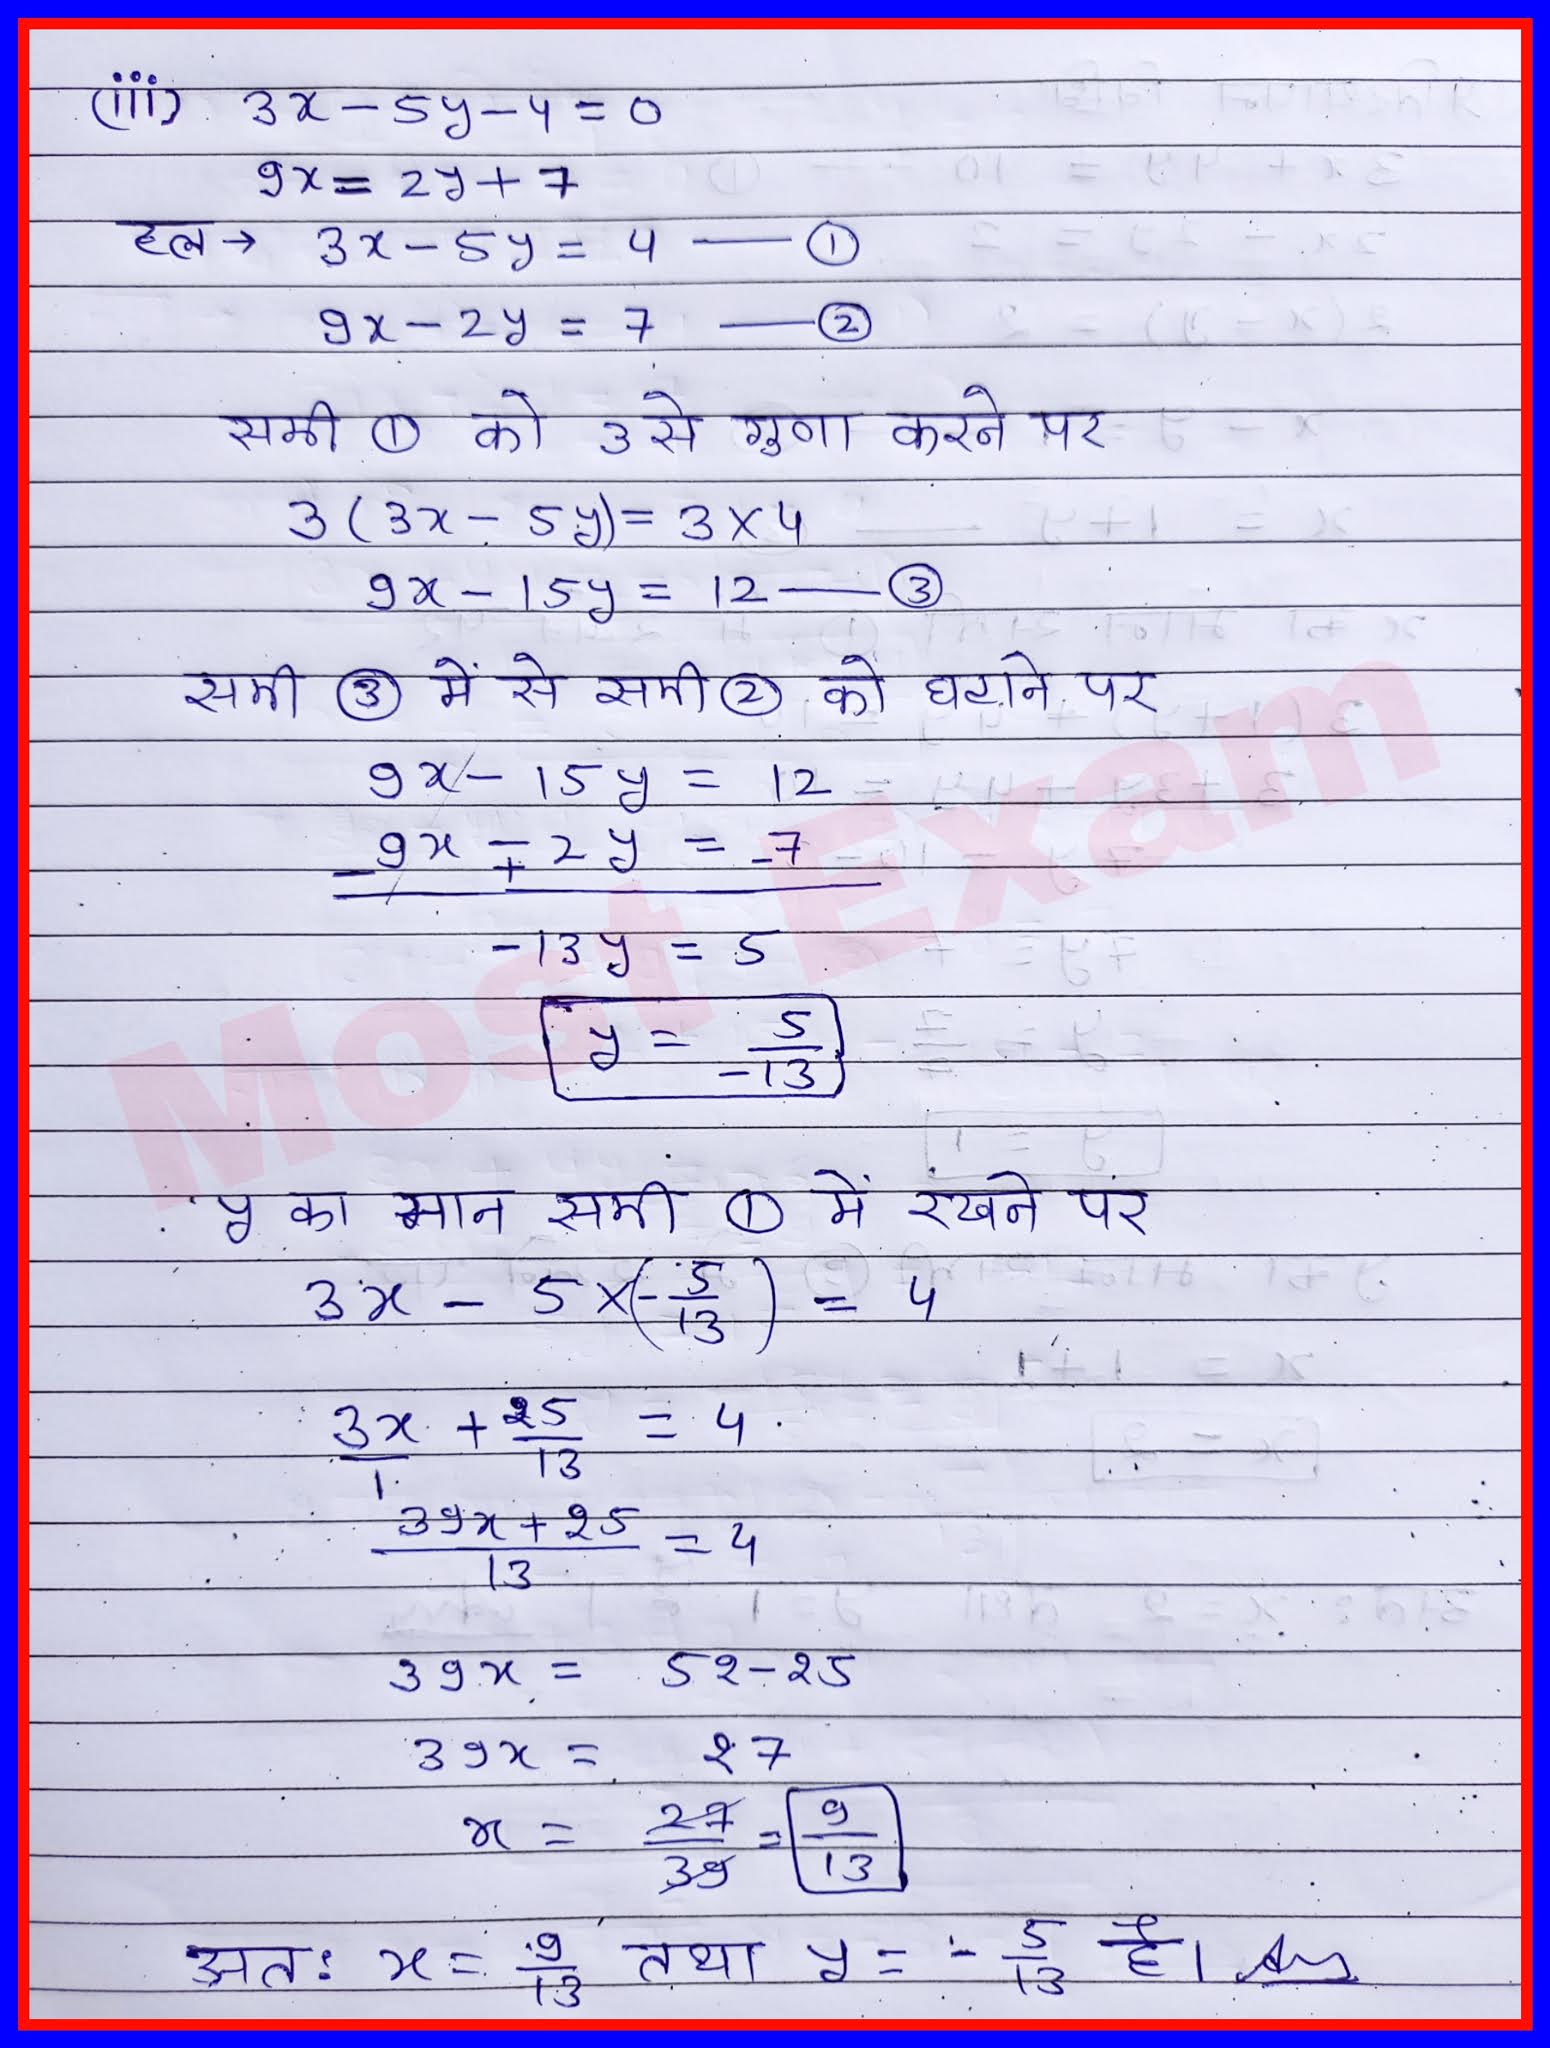 (iii) 3x - 5y - 4 = 0
9x = 2y + 7
हल → 3x - 5y = 4 —— ①
9x - 2y = 7 —— ②
समी ① को 3 से गुणा करने पर
3(3x - 5y) = 3 × 4
9x - 15y = 12 —— ③
समी ③ में से समी ② को घटाने पर
9x - 15y = 12
9x - 2y = 7
- + -
-13y = 5
y = 5/-13
y का मान समी ① में रखने पर
3x - 5 × (-5/13) = 4
3x/1 + 25/13 = 4
39x + 25/13 = 4
39x = 52 - 25
39x = 27
x = 27/39 = 9/13
अतः x = 9/13 तथा y = - 5/13 है। Ans
Most Exam